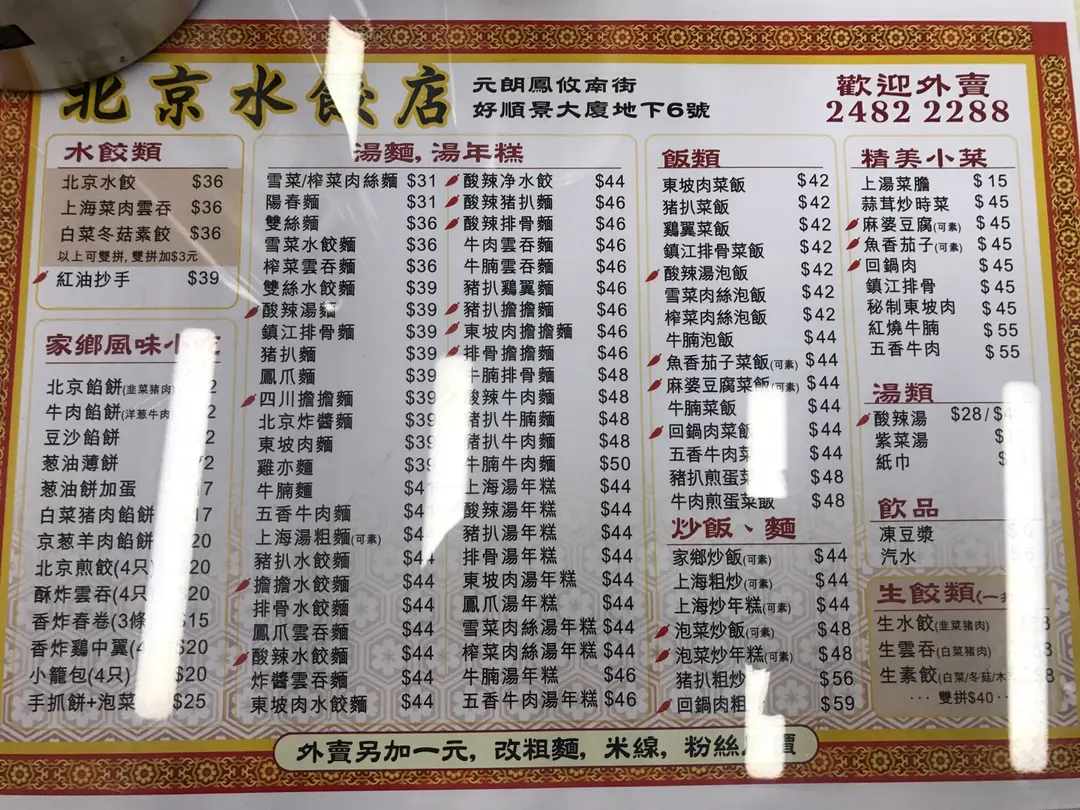 北京水餃店
元朗鳳攸南街
好順景大廈地下6號
歡迎外賣
2482 2288
水餃類
北京水餃 $36
上海菜肉雲吞 $36
白菜冬菇素餃 $36
以上可雙拼, 雙拼加$3元
紅油抄手 $39
家鄉風味小吃
北京餡餅(韭菜豬肉) 2
牛肉餡餅(洋葱牛肉 2
豆沙餡餅 2
葱油薄餅 2
葱油餅加蛋 17
白菜豬肉餡餅 17
京葱羊肉餡餅 20
北京煎餃(4只) 20
酥炸雲吞(4只 20
香炸春卷(3條 $15
香炸鷄中翼(4 $20
小籠包(4只) $20
手抓餅+泡菜 $25
湯麵, 湯年糕
雪菜/榨菜肉絲麵 $31
陽春麵 $31
雙絲麵 $36
雪菜水餃麵 $36
榨菜雲吞麵 $36
雙絲水餃麵 $36
酸辣湯麵 $39
鎮江排骨麵 $39
豬扒麵 $39
鳳爪麵 $39
四川擔擔麵 $39
北京炸醬麵 $39
東坡肉麵 $39
雞亦麵 $39
牛腩麵 $4
五香牛肉麵 $4
上海湯粗麵(可素) $4
豬扒水餃麵 $44
擔擔水餃麵 $44
排骨水餃麵 $44
鳳爪雲吞麵 $44
酸辣水餃麵 $44
炸醬雲吞麵 $44
東坡肉水餃麵 $44
酸辣净水餃 $44
酸辣豬扒麵 $46
酸辣排骨麵 $46
牛肉雲吞麵 $46
牛腩雲吞麵 $46
豬扒鷄翼麵 $46
豬扒擔擔麵 $46
東坡肉擔擔麵 $46
排骨擔擔麵 $46
牛腩排骨麵 $48
酸辣牛肉麵 $48
豬扒牛腩麵 $48
豬扒牛肉麵 $48
牛腩牛肉麵 $50
上海湯年糕 $44
酸辣湯年糕 $44
豬扒湯年糕 $44
排骨湯年糕 $44
東坡肉湯年糕 $44
鳳爪湯年糕 $44
雪菜肉絲湯年糕 $44
榨菜肉絲湯年糕 $44
牛腩湯年糕 $46
五香牛肉湯年糕 $46
飯類
東坡肉菜飯 $42
豬扒菜飯 $42
鷄翼菜飯 $42
鎮江排骨菜飯 $42
酸辣湯泡飯 $42
雪菜肉絲泡飯 $42
榨菜肉絲泡飯 $42
牛腩泡飯 $44
魚香茄子菜飯(可素) $44
麻婆豆腐菜飯(可素) $44
牛腩菜飯 $44
回鍋肉菜飯 $44
五香牛肉菜 $44
豬扒煎蛋菜 $48
牛肉煎蛋菜飯 $48
炒飯、麵
家鄉炒飯(可素) $44
上海粗炒(可素) $44
上海炒年糕(可素) $44
泡菜炒飯(可素) $48
泡菜炒年糕(可素) $48
豬扒粗炒 $56
回鍋肉粗 $59
精美小菜
上湯菜膽 $15
蒜茸炒時菜 $45
麻婆豆腐(可素) $45
魚香茄子(可素) $45
回鍋肉 $45
鎮江排骨 $45
秘制東坡肉 $45
紅燒牛腩 $55
五香牛肉 $55
湯類
酸辣湯 $28/$4
紫菜湯 $1
紙巾 $
飲品
凍豆漿
汽水
生餃類(一
生水餃(韭菜豬肉) 8
生雲吞(白菜豬肉) 8
生素餃(白菜/冬菇/木 8
··· 雙拼$40 ···
外賣另加一元, 改粗麵, 米線, 粉絲 價